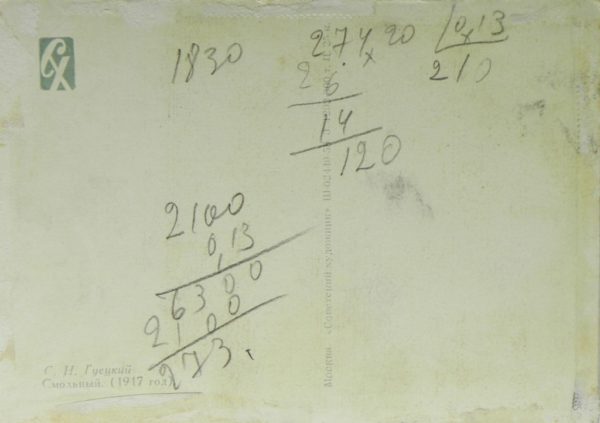 СХ
1830
274,20
0,13
26
210
14
120
2100
0,13
6300
2100
273.
С. Н. Гуецкий
Смольный. (1917 год)
Москва «Советский художник»